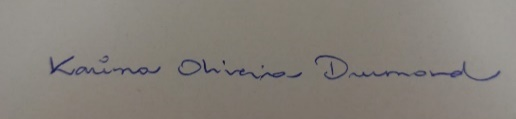 Karina Oliveira Drumond